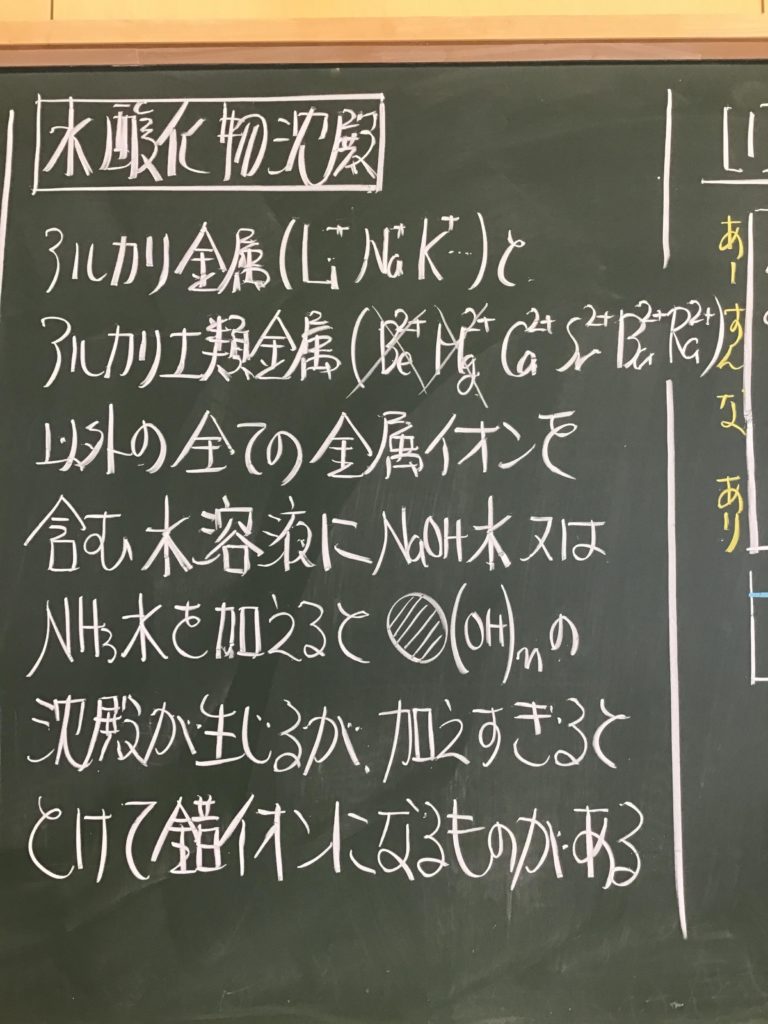 水酸化物沈殿
アルカリ金属(Li⁺ Na⁺ K⁺…)と
アルカリ土類金属(Be²⁺ Mg²⁺ Ca²⁺ Sr²⁺ Ba²⁺ Ra²⁺)
以外の全ての金属イオンを
含む水溶液にNaOH水又は
NH₃水を加えると ●(OH)ₙの
沈殿が生じるが、加えすぎると
とけて錯イオンになるものがある
[1]
あーすんな あり